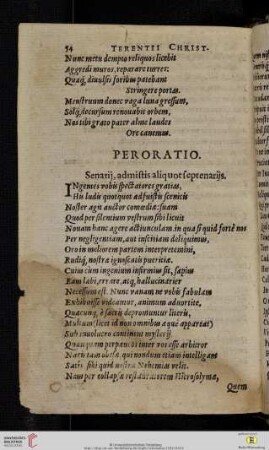 54 TERENTII CHRIST.
Nunc metu dempto reliquos licebit
Aggredi muros, reparare turres:
Quaq; diuulsis foribus patebant
Stringere portas.
Menstruum donec vaga luna gressum,
Solq; decursum renouabit orbem,
Nos tibi grato pater alme laudes
Ore canemus.
PERORATIO.
Senarij, admistis aliquot septenarijs.
INgentes vobis spectatores gratias,
Hii ludii quotquot adfuistis scenicis
Noster agit auctor comœdiæ: suam
Quod per silentium vestrum sibi licuit
Nouam hanc agere actiunculam in qua si quid fortè nos
Per negligentiam, aut inscitiam deliquimus,
Oro in meliorem partem interpretemini,
Rudiq; nostræ ignoscatis pueritiæ.
Cui cum ingenium infirmum sit, sæpius
Eam labi, errare, atq; hallucinarier
Necessum est. Nunc vanam ne vobis fabulam
Exhibuisse videamur, animum aduortite,
Quæcunq; è sacris depromuntur literis,
Multum (licet id non omnibus aquè appareat)
Sub inuolucro continent mysterij.
Quanquam perpaucos inter vos esse arbitror
Natu tam obeso, qui nondum etiam intelligant
Satis sibi quid nostra Nehemias velit.
Nam per collapsa restauratorem Hierosolymæ,
Quem